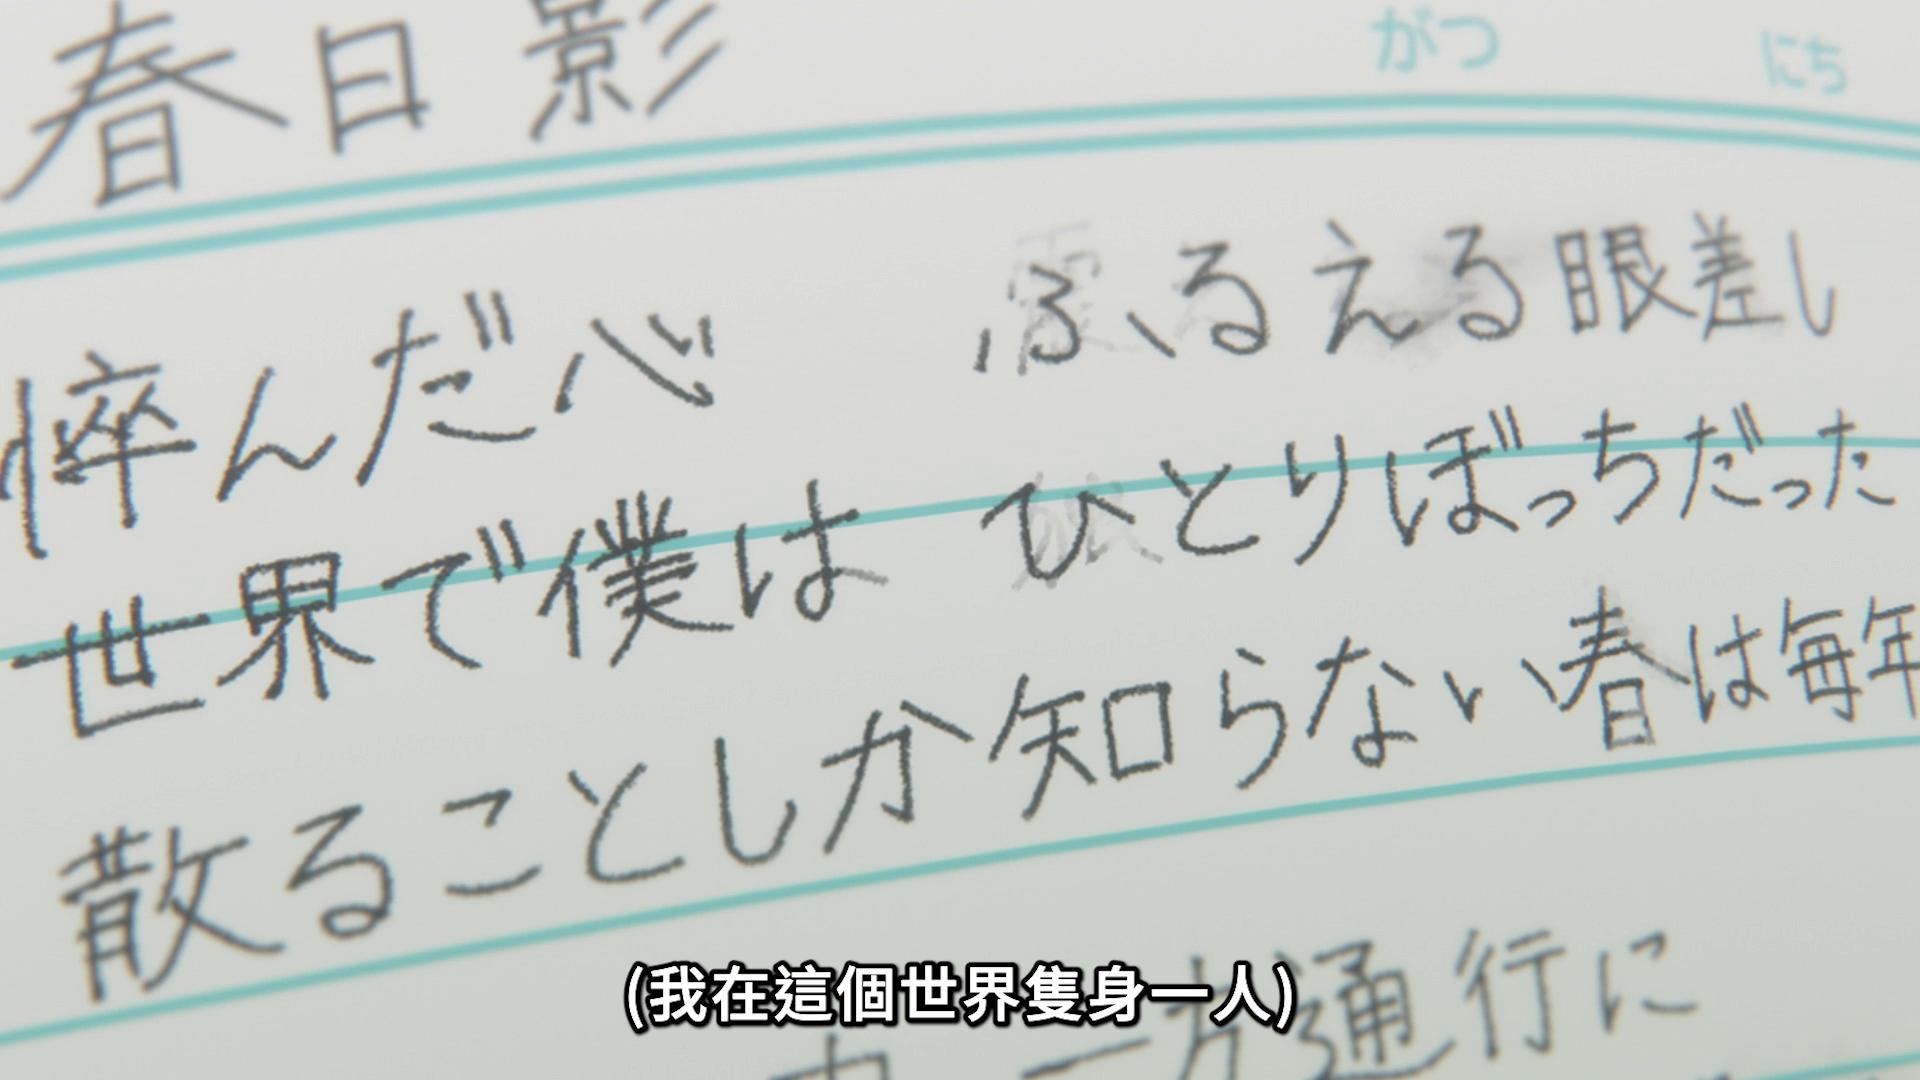 春日影
がつ にち
悴んだ心 ふるえる眼差し
世界で僕は ひとりぼっちだった
散ることしか知らない春は毎年
一方通行に
(我在這個世界隻身一人)